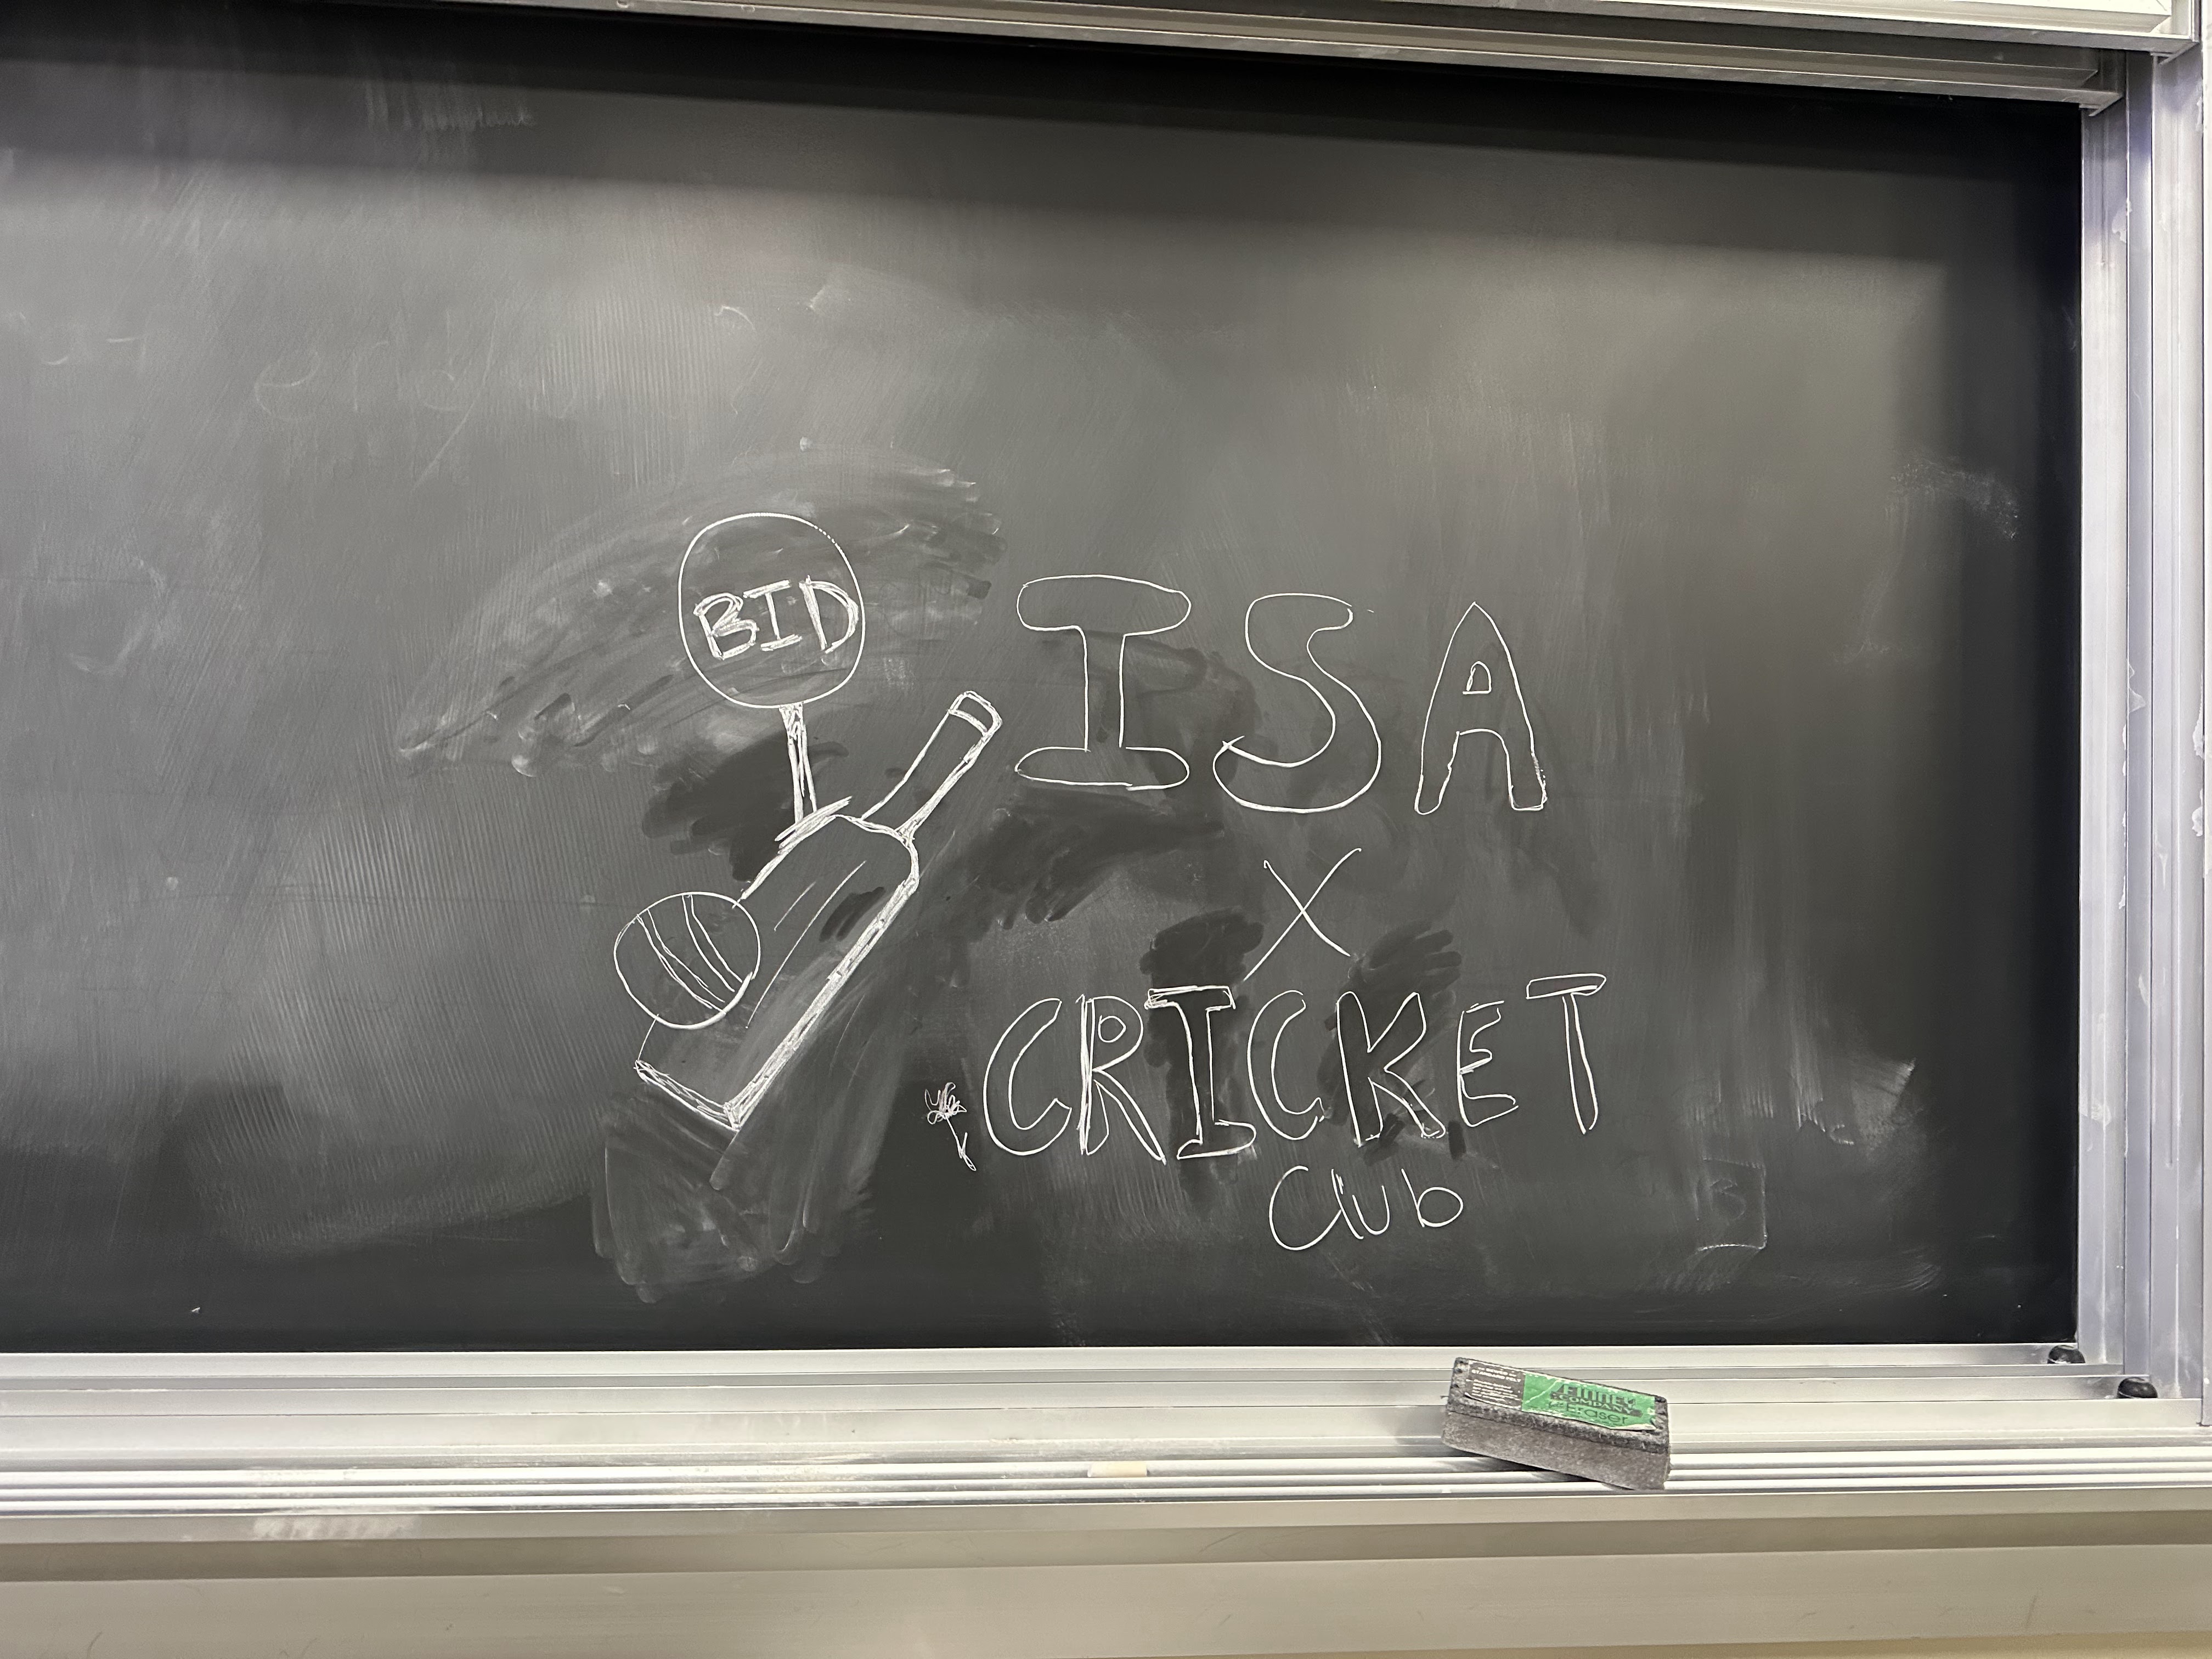 BID
ISA
X
CRICKET
Club
Eraser